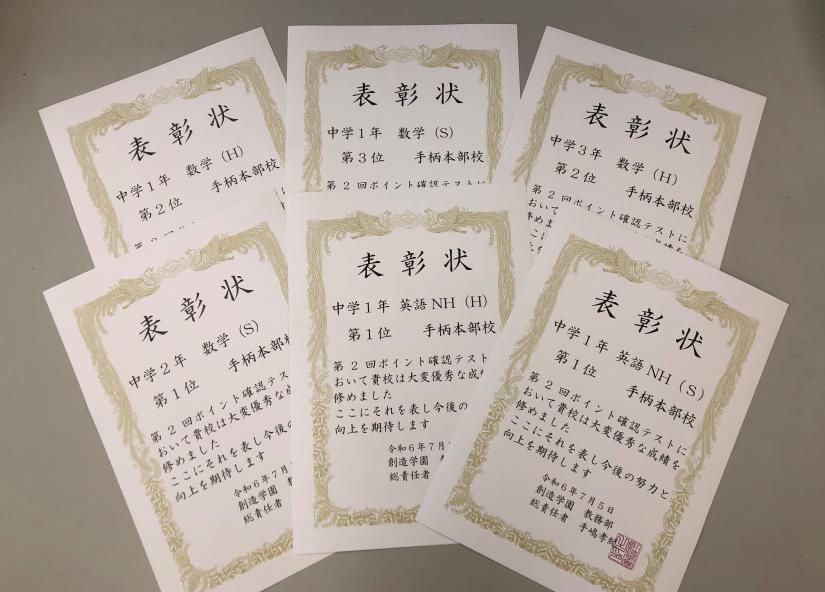 表彰状
中学1年 数学(H)
第2位 手柄本部校
表彰状
中学1年 数学(S)
第3位 手柄本部校
第2回ポイント確認テストに
表彰状
中学3年 数学(H)
第2位 手柄本部校
第2回ポイント確認テストに
おいて
修めま
ここに
表彰状
中学2年 数学(S)
第1位 手柄本部校
第2回ポイント確認テスト
おいて貴校は大変優秀な成
修めました
ここにそれを表し今後の
向上を期待します
令和6年7月
創造学園
総責任者
表彰状
中学1年 英語NH(H)
第1位 手柄本部校
第2回ポイント確認テスト
おいて貴校は大変優秀な成
修めました
ここにそれを表し今後の
向上を期待します
令和6年7月
創造学園
総責任者
表彰状
中学1年 英語NH(S)
第1位 手柄本部校
第2回ポイント確認テストに
おいて貴校は大変優秀な成績を
修めました
ここにそれを表し今後の努力と
向上を期待します
令和6年7月5日
創造学園 教務部
総責任者 手嶋孝